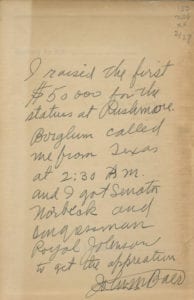 I raised the first
$50000 for the
statues at Rushmore.
Borglum called
me from Texas
at 2:30 A.M.
and I got Senator
Norbeck and
Congressman
Royal Johnson
to get the appreation
John M Baer